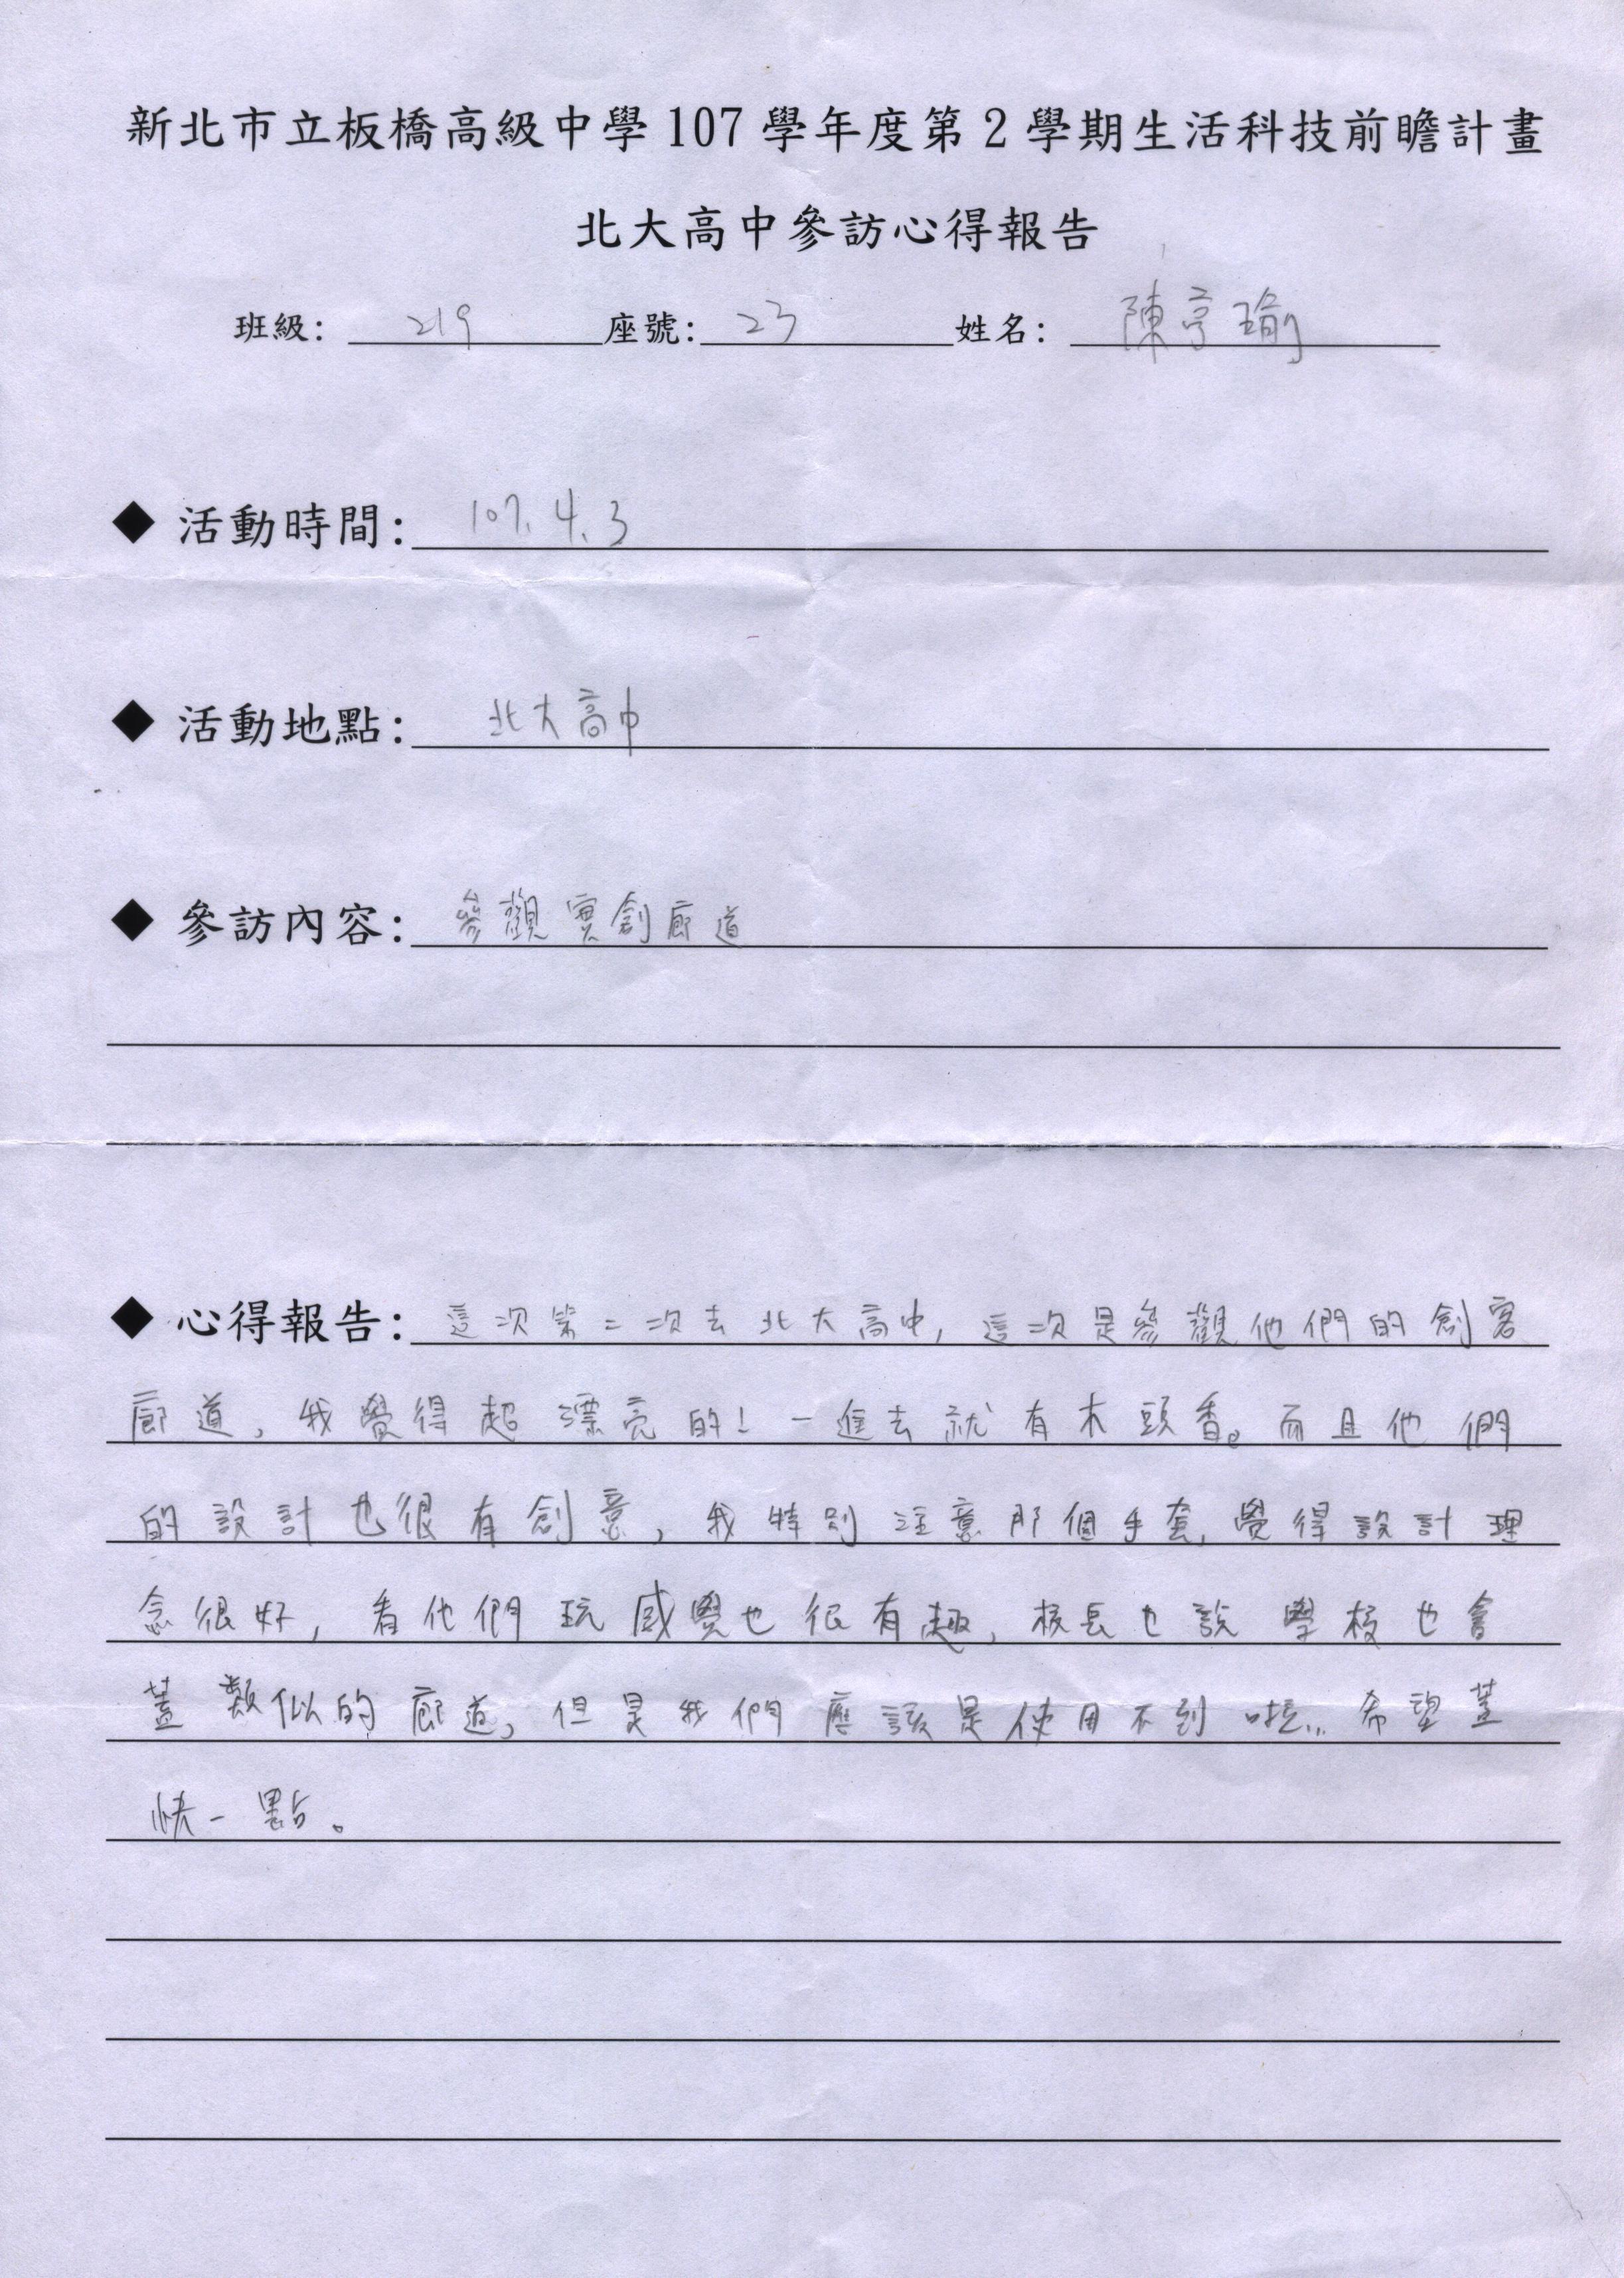 新北市立板橋高級中學 107 學年度第 2 學期生活科技前瞻計畫
北大高中參訪心得報告
班級： 219 座號： 23 姓名： 陳亨瑜
◆ 活動時間： 107.4.3
◆ 活動地點： 北大高中
◆ 參訪內容： 參觀實創廊道
◆ 心得報告： 這次第二次去北大高中, 這次是參觀他們的創客
廊道, 我覺得超漂亮的! 一進去就有木頭香。而且他們
的設計也很有創意, 我特別注意那個手套, 覺得設計理
念很好, 看他們玩感覺也很有趣, 校長也說學校也會
蓋類似的廊道, 但是我們應該是使用不到啦... 希望蓋
快一點。